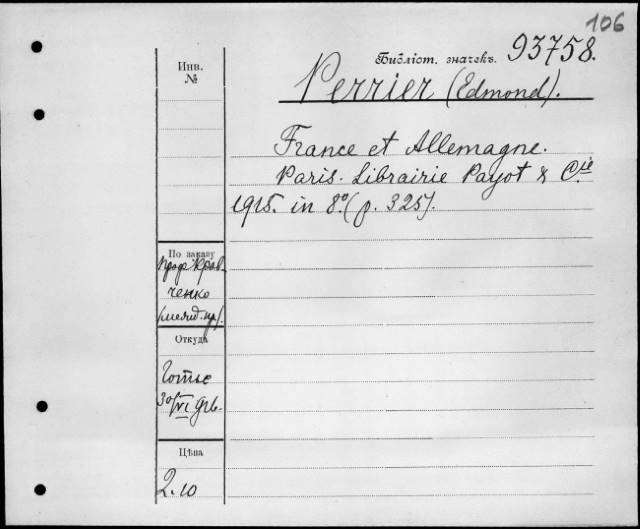 106
Библіот. значекъ. 93758.
Инв.
№
Perrier (Edmond).
France et Allemagne.
Paris. Librairie Payot & Cie
1915. in 8º (p. 325).
По заказу
Проф Крав-
ченко
Откуда
30/VI 916.
Цѣна
2.10